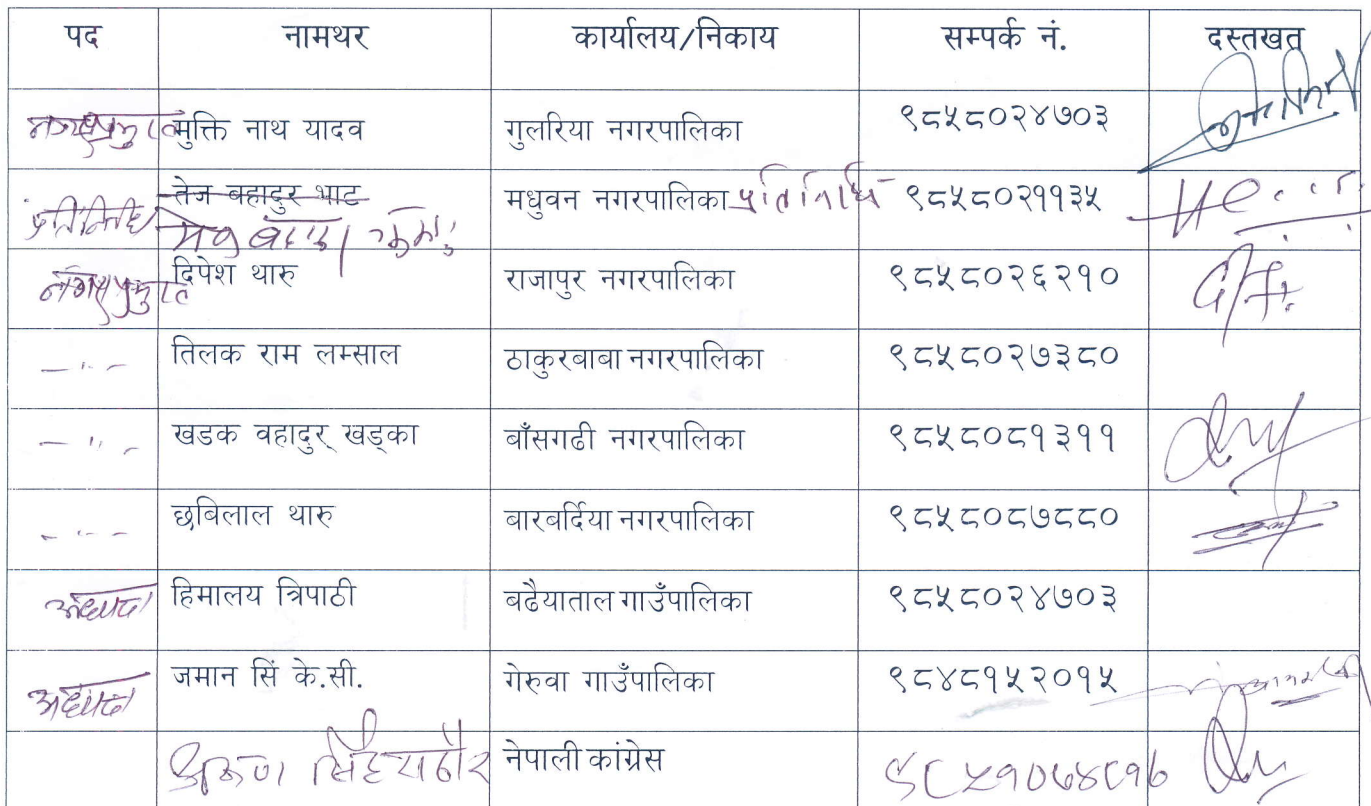 पद नामथर कार्यालय/निकाय सम्पर्क नं. दस्तखत
नगरप्रमुख मुक्ति नाथ यादव गुलरिया नगरपालिका ९८५८०२४७०३
तेज बहादुर भाट मधुवन नगरपालिका प्रतिनिधि ९८५८०२११३५
प्रतिनिधि
नगरप्रमुख दिपेश थारु राजापुर नगरपालिका ९८५८०२६२१०
—"— तिलक राम लम्साल ठाकुरबाबा नगरपालिका ९८५८०२७३८०
—"— खडक वहादुर् खड्का बाँसगढी नगरपालिका ९८५८०८१३११
—"— छबिलाल थारु बारबर्दिया नगरपालिका ९८५८०८७८८०
अध्यक्ष हिमालय त्रिपाठी बढैयाताल गाउँपालिका ९८५८०२४७०३
अध्यक्ष जमान सिं के.सी. गेरुवा गाउँपालिका ९८४८१५२०१५
नेपाली कांग्रेस